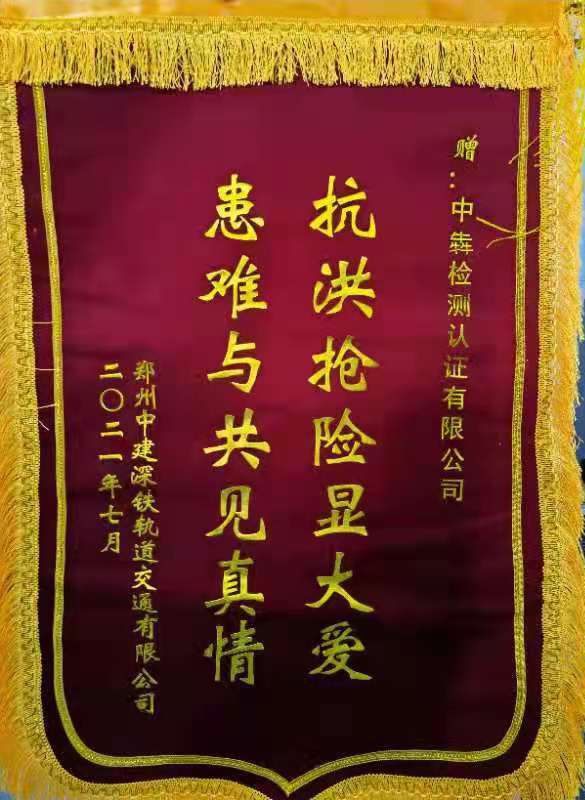 赠：中犇检测认证有限公司
抗洪抢险显大爱
患难与共见真情
郑州中建深铁轨道交通有限公司
二〇二一年七月